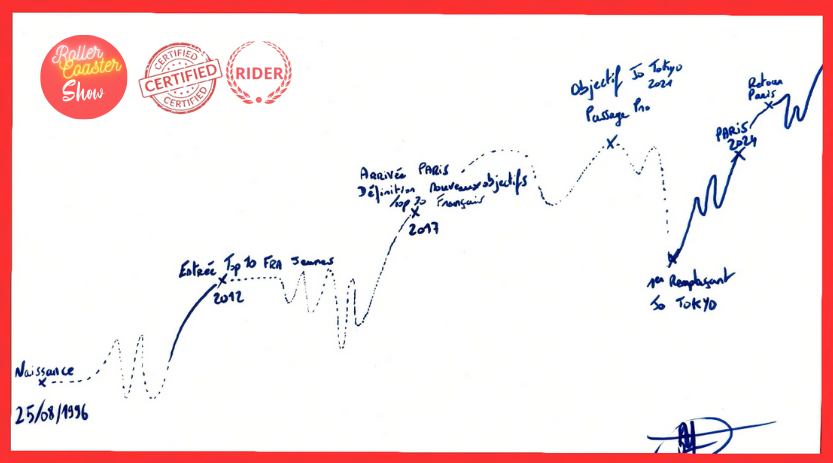 Roller
Coaster
Show
CERTIFIED
CERTIFIED
CERTIFIED
RIDER
Naissance
25/08/1996
Entrée Top 10 FRA Jeunes
2012
Arrivée PARIS
Définition nouveaux objectifs
Top 20 Français
2017
Objectif Jo Tokyo
2021
Passage Pro
1er Remplaçant
Jo TOKYO
PARIS
2024
Retour
Paris